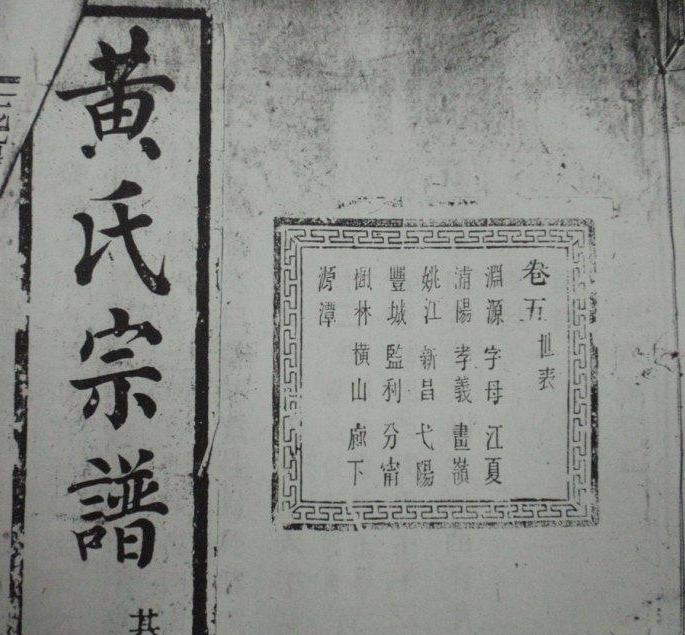 黃氏宗譜
卷五 世表
淵源 字母 江夏
浦陽 孝義 畫嶺
姚江 新昌 弋陽
豐城 監利 分甯
楓林 橫山 廊下
源潭